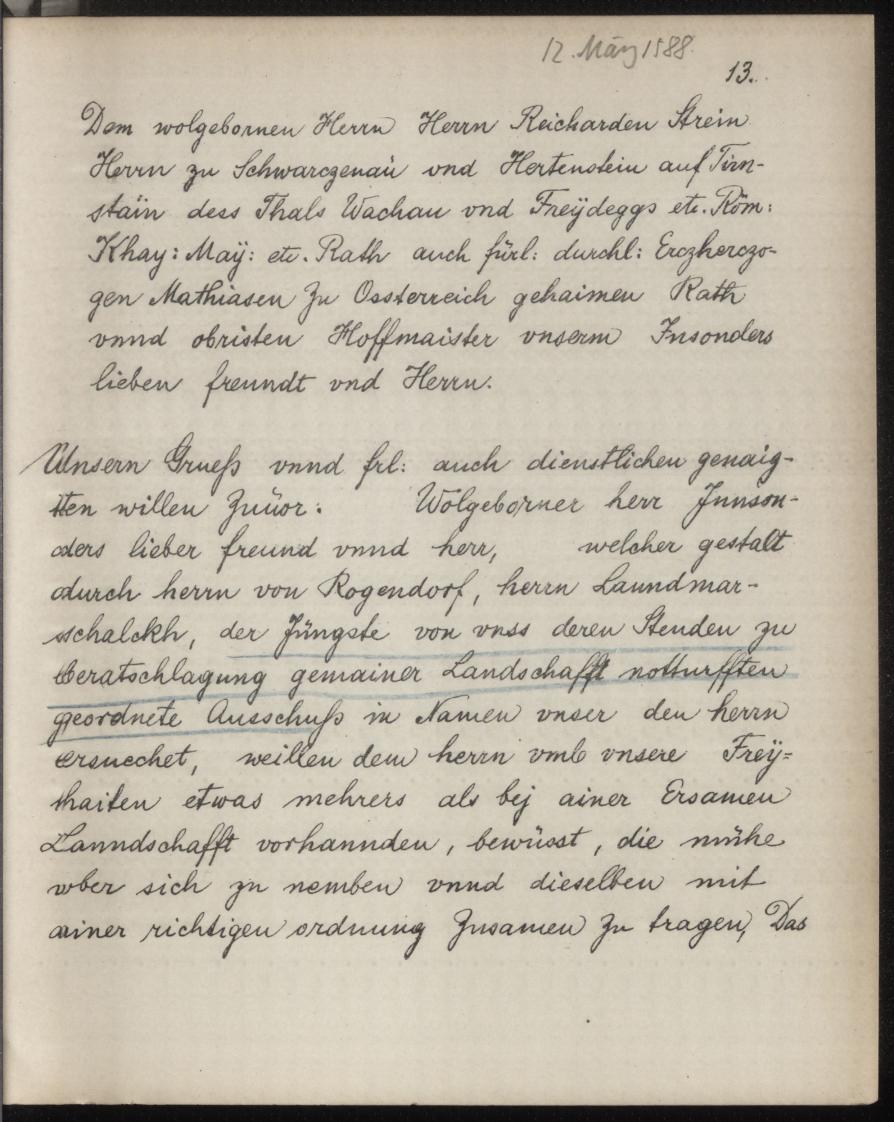 12. März 1588.
13.
Dem wolgebornen Herrn Herrn Reicharden Strein
Herrn zu Schwarczenaü vnd Hertenstein auf Tirn-
staïn dess Thals Wachau vnd Freÿdeggs etc. Röm:
Khay: Maÿ: etc. Rath auch fürl: durchl: Erczherczo-
gen Mathiasen Zu Ossterreich gehaimen Rath
vnnd obristen Hoffmaister vnserm Insonders
lieben freundt vnd Herrn.
Unsern Grueß vnnd frl: auch dienstlichen genaig-
ten willen Zuüor. Wolgeborner herr Jnnson-
ders lieber freund vnnd herr, welcher gestalt
durch herrn von Rogendorf, herrn Lanndmar-
schalckh, der Jüngste von vnss deren Stenden zu
beratschlagung gemainer Landschafft notturfften
geordnete Ausschuß in Namen vnser den herrn
ersuechet, weillen dem herrn vmb vnsere Freÿ=
thaiten etwas mehrers als bej ainer Ersamen
Lanndschafft vorhannden, bewüsst, die mühe
vber sich zu nemben vnnd dieselben mit
ainer richtigen ordnung Zusamen Zu tragen, Das